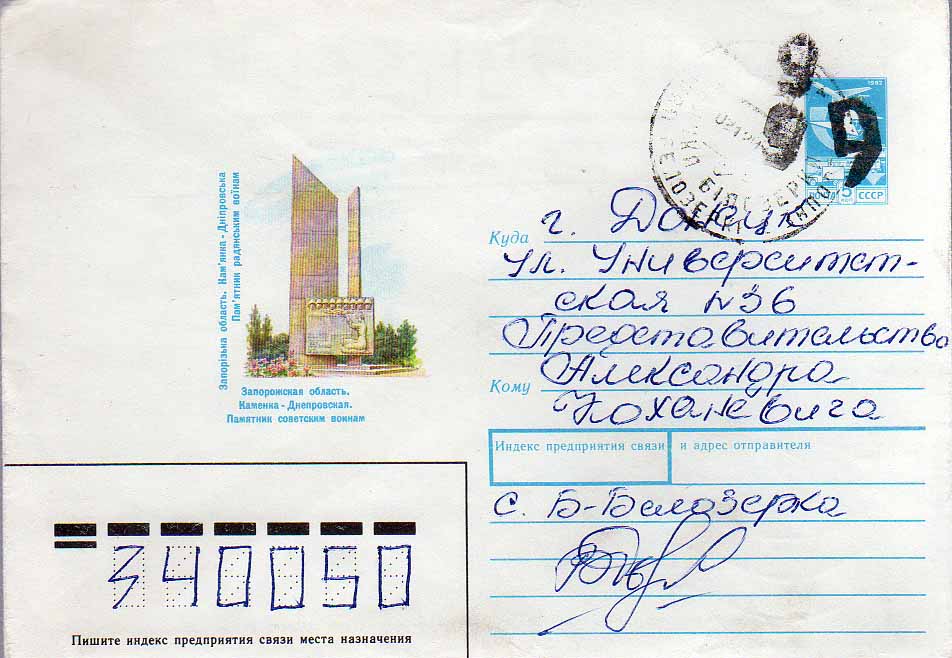 Запорізька область. Кам'янка - Дніпровська
Пам'ятник радянським воїнам
Запорожская область.
Каменка - Днепровская.
Памятник советским воинам
1982
5 коп
СССР
Куда г. Донецк
ул. Университет-
ская N 36
Представительство
Кому Александра
Коханевича
Индекс предприятия связи и адрес отправителя
с. Б-Белозерка
340050
Пишите индекс предприятия связи места назначения